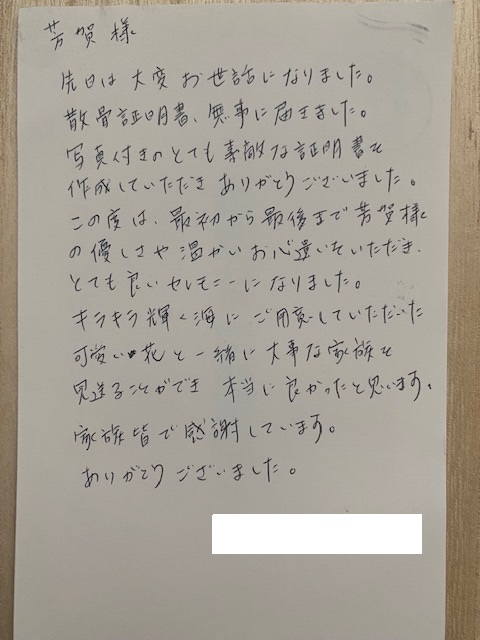 芳賀様
先日は大変お世話になりました。
散骨証明書、無事に届きました。
写真付きのとても素敵な証明書を
作成していただきありがとうございました。
この度は、最初から最後まで芳賀様
の優しさや温かいお心遣いをいただき、
とても良いセレモニーになりました。
キラキラ輝く海にご用意していただいた
可愛い花と一緒に大事な家族を
見送ることができ 本当に良かったと思います。
家族皆で感謝しています。
ありがとうございました。